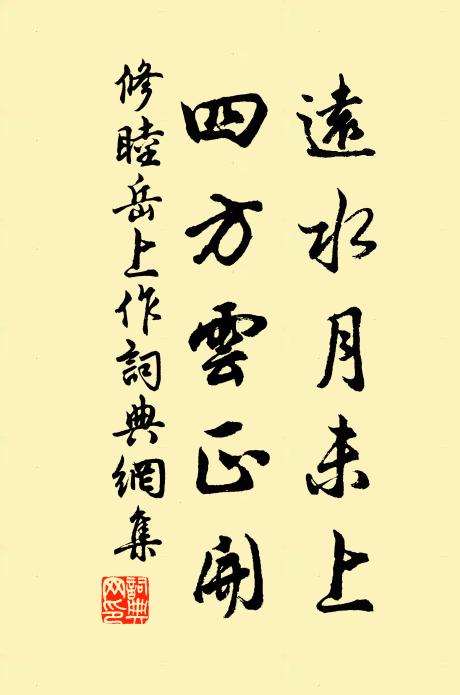 遠水月未上
四方雲正開
修睦岳上作詞典網集
詞典网印